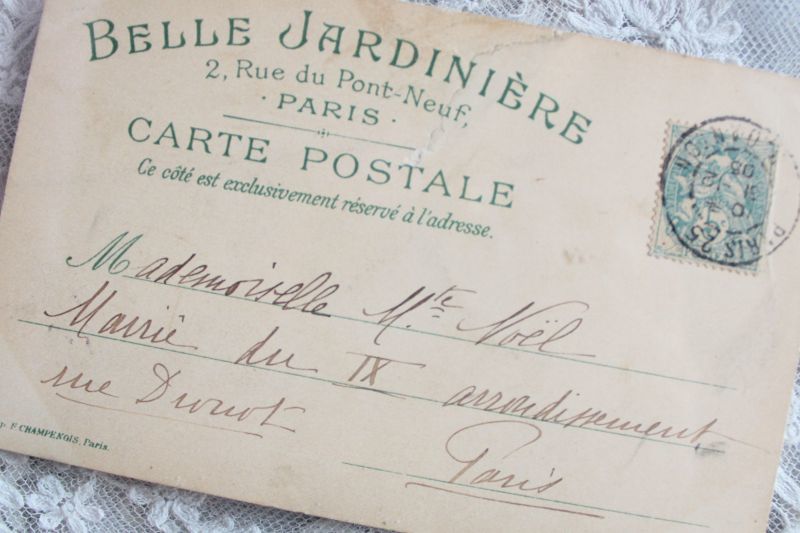 BELLE JARDINIÈRE
2, Rue du Pont-Neuf,
· PARIS ·
CARTE POSTALE
Ce côté est exclusivement réservé à l'adresse.
Mademoiselle M.te Noël
Mairie du IX arrondissement
rue Drouot
Paris
F. CHAMPENOIS, Paris.
PARIS 25